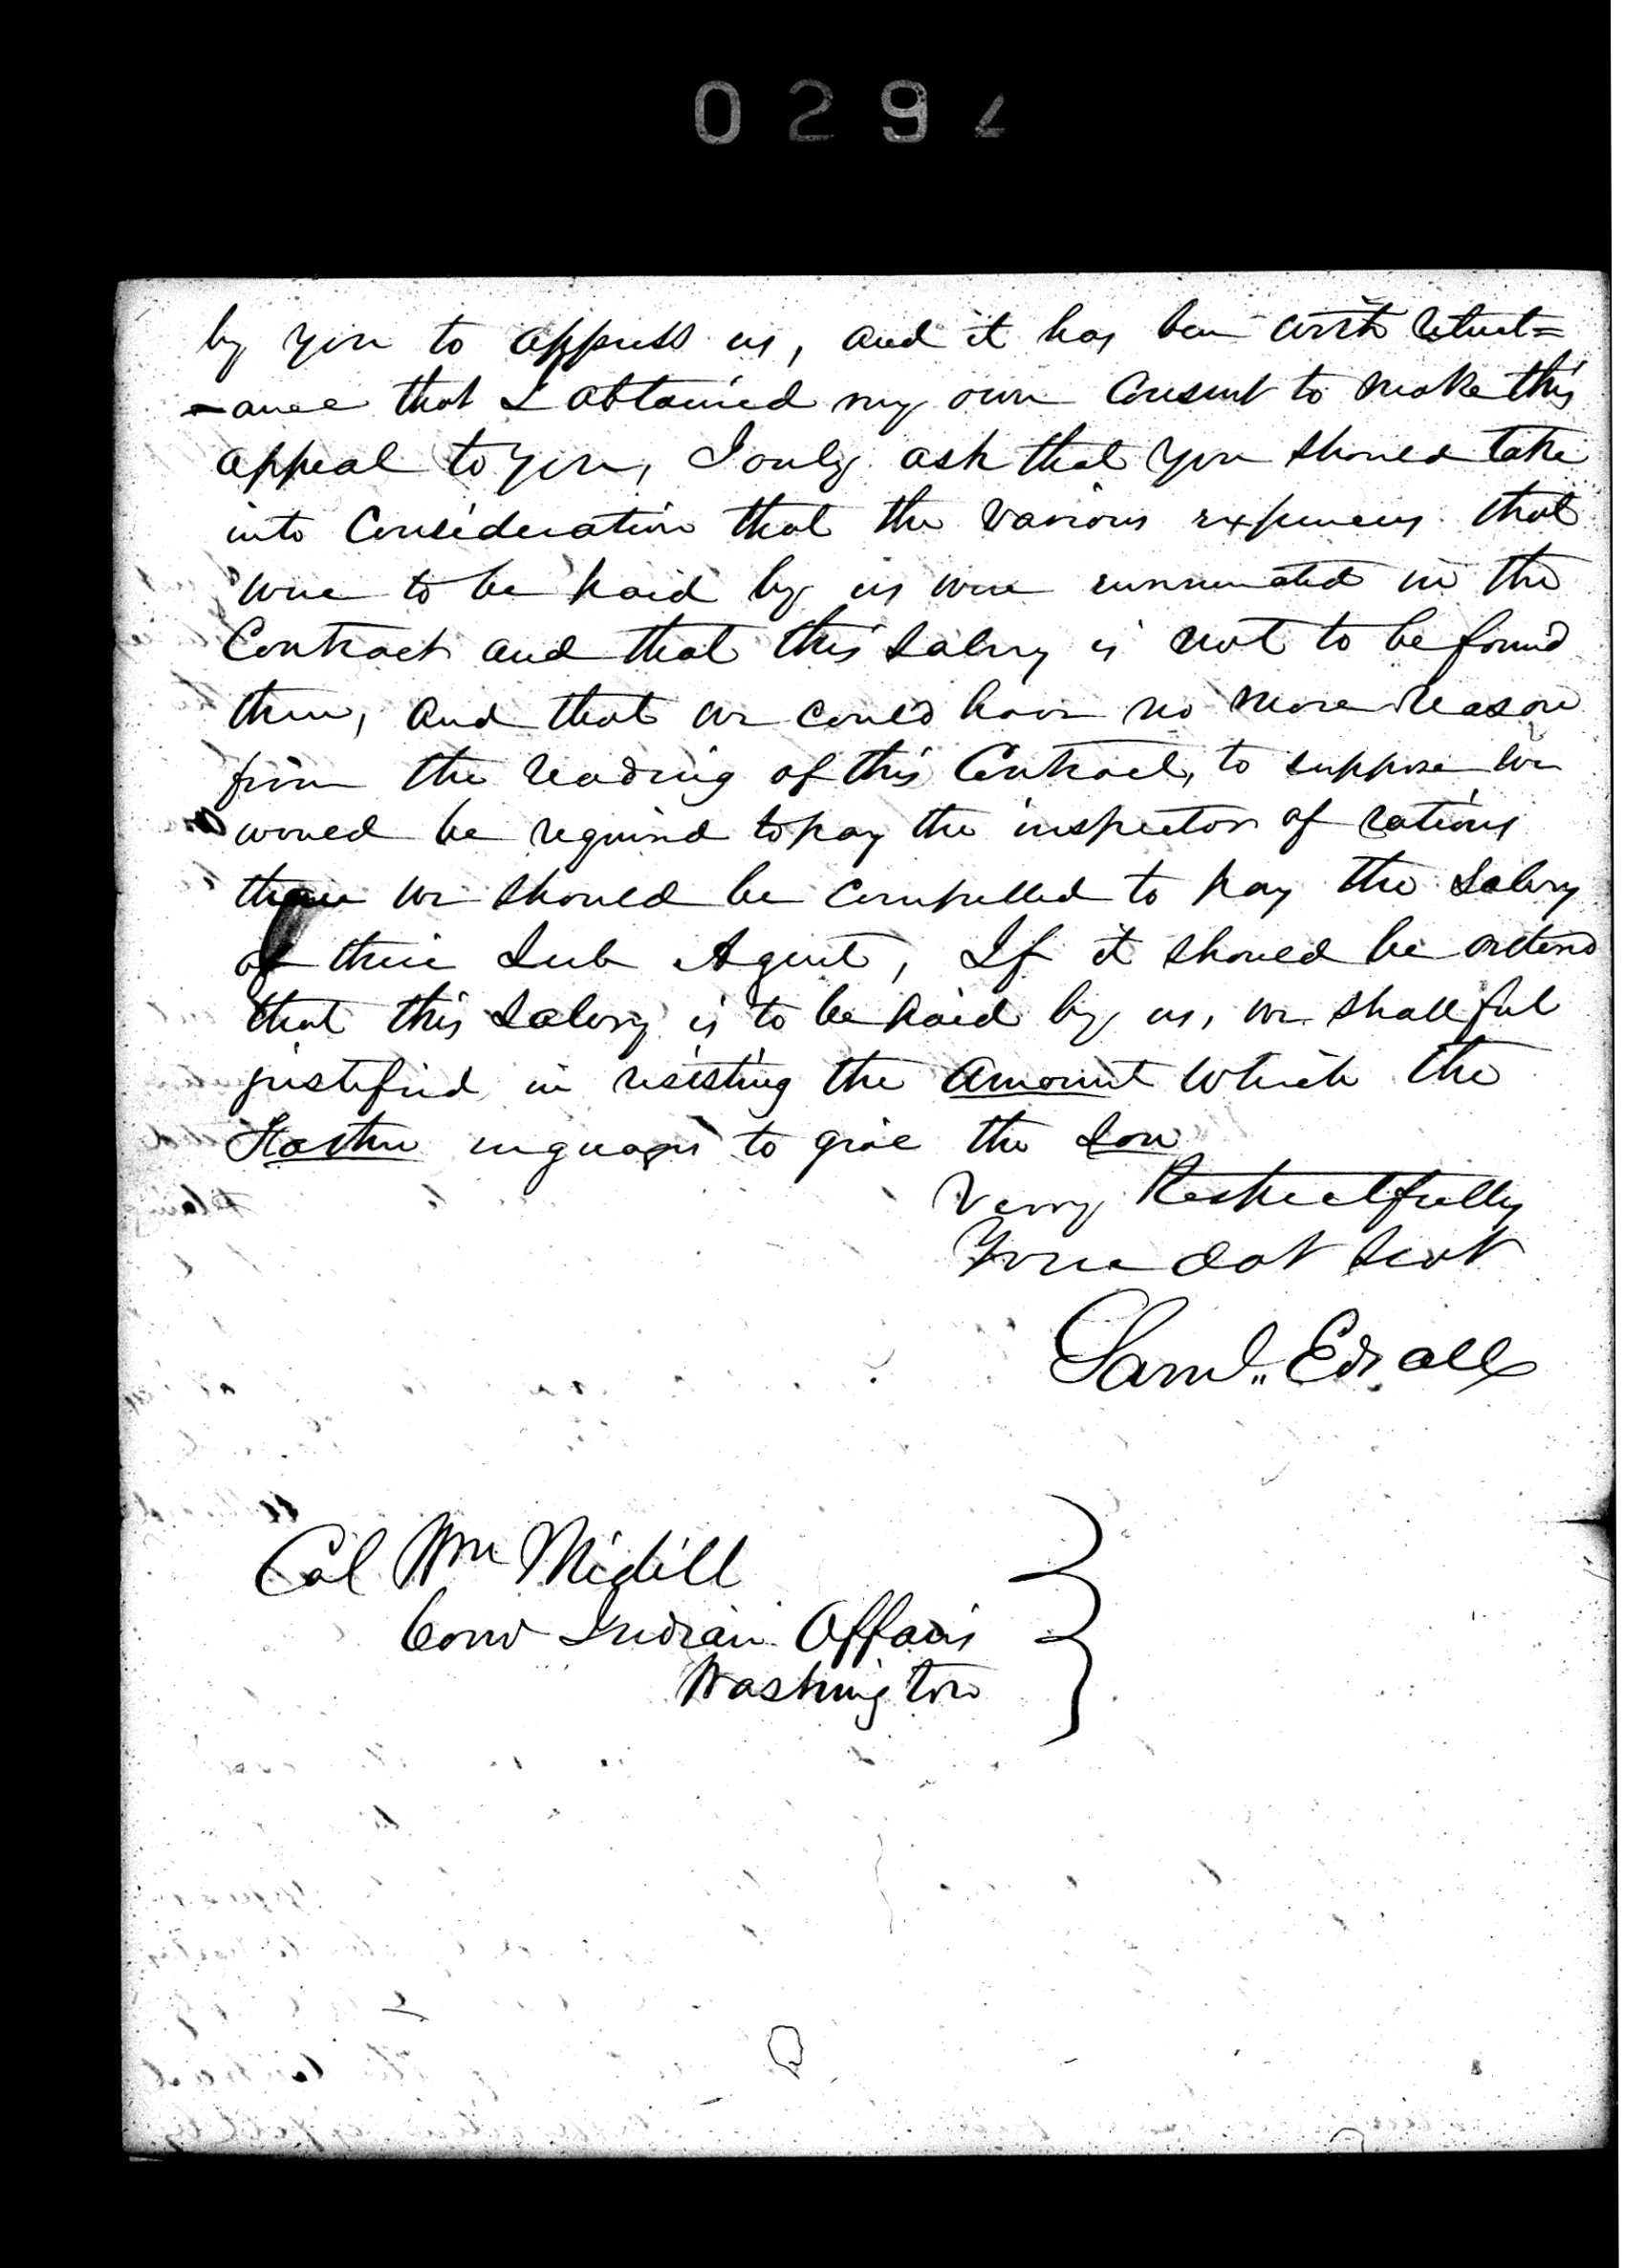 0294
by you to oppress us, and it has been with reluct=
-ance that I obtained my own Consent to make this
appeal to you, I only ask that you should take
into Consideration that the various expenses that
were to be paid by us were enumerated in the
Contract and that this Salary is not to be found
there, and that we could have no more reason
from the reading of this Contract, to suppose we
would be required to pay the inspector of rations
than we should be compelled to pay the Salary
of their Sub Agent, If it should be
that this Salary is to be paid by us, we shall feel
justified in resisting the amount which the
to give the Son
Very Respectfully
Your obt Servt
Saml. Edsall
Col Wm Medill
Com Indian Affairs
Washington